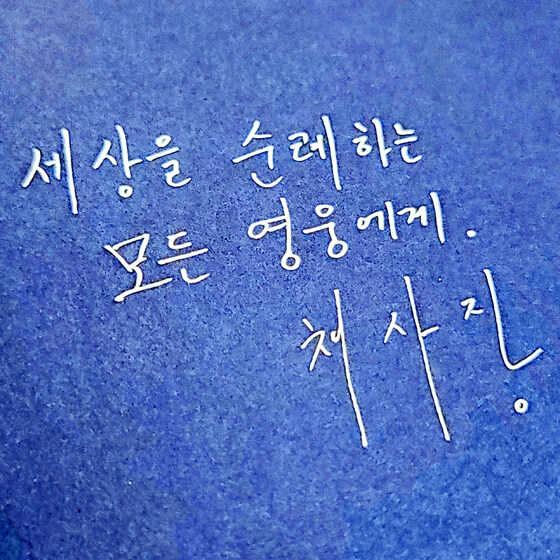 세상을 순례하는
모든 영웅에게.
채사장